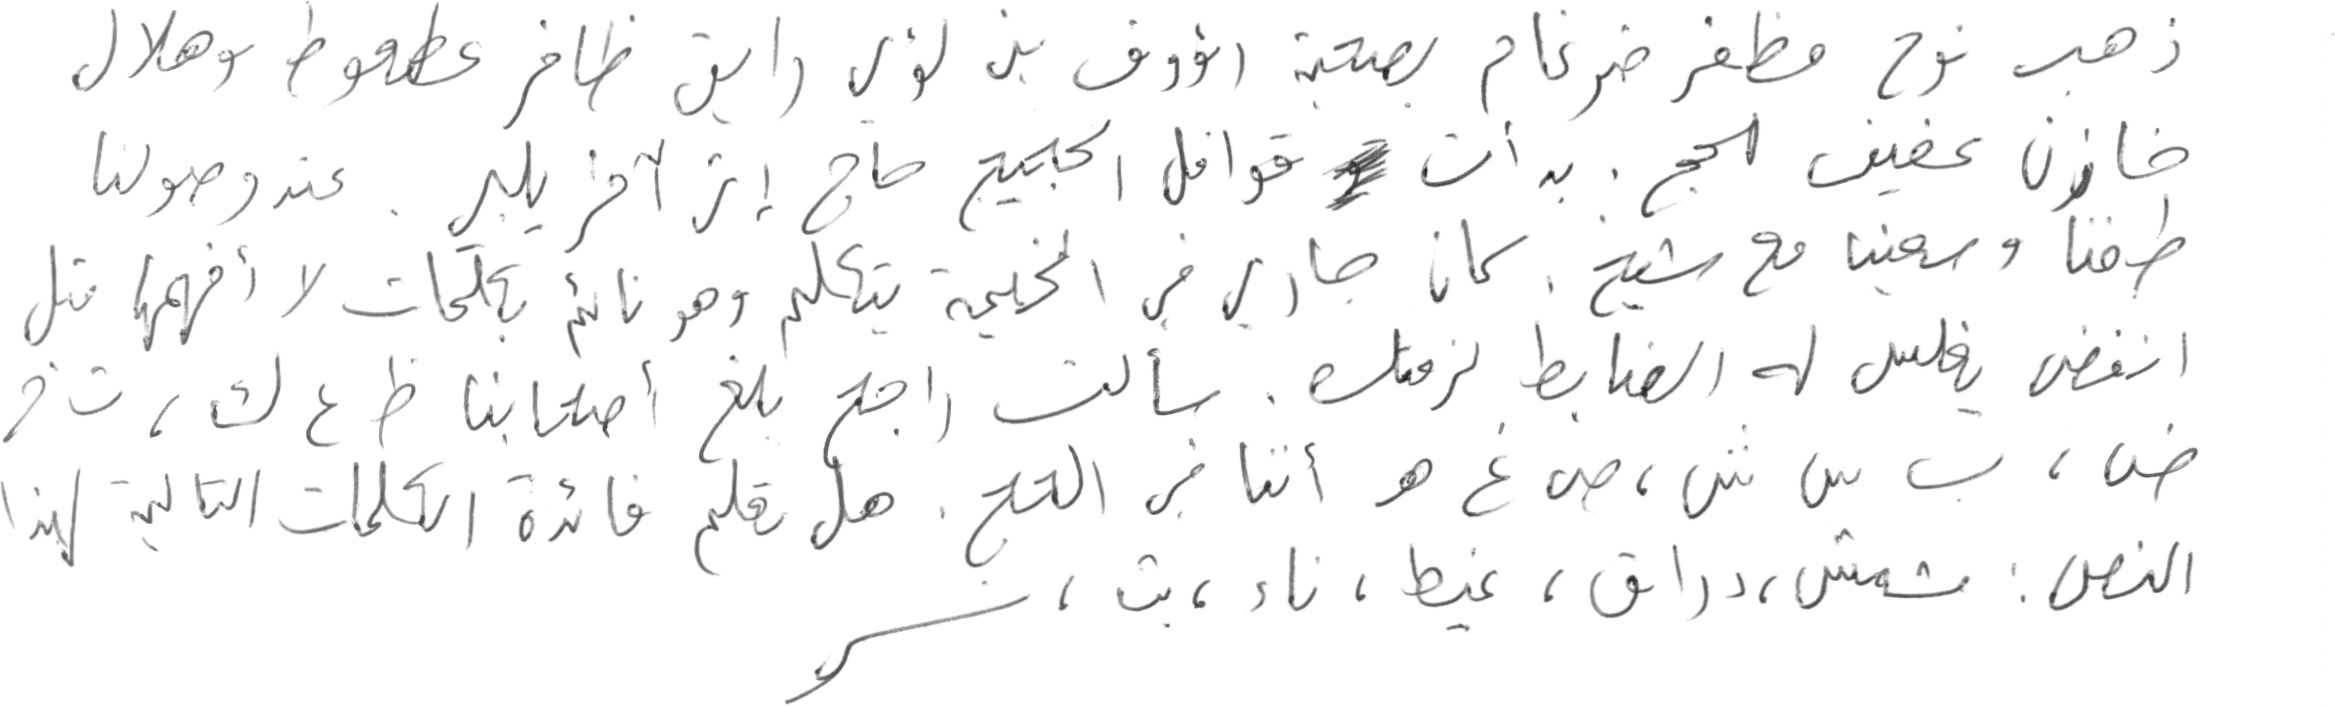 ذهب نوح مظفر ضرغام بصحبة رؤوف بن لؤي رايق ظافر عطعوط وهلال
خازن عفيف الحج. بدأت قوافل الحجيج حاج إثر آخر يلبي. عند وصولنا
طفنا وسعينا مع شيخ. كان جاري في الخيمة يتكلم وهو نائم بكلمات لا أفهمها مثل
انفض يغلس له الضابط لزمتك. سألت راجح بلغ أصحابنا ظ ع ك، ث خ
ض، ب س ش، ص غ هو أثنا في الحج. هل تعلم فائدة الكلمات التالية لهذا
النص: مشمش، دراق، غيط، ناء، بث،